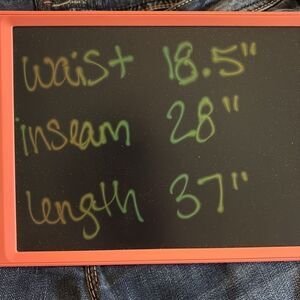 waist 18.5"
inseam 28"
length 37"